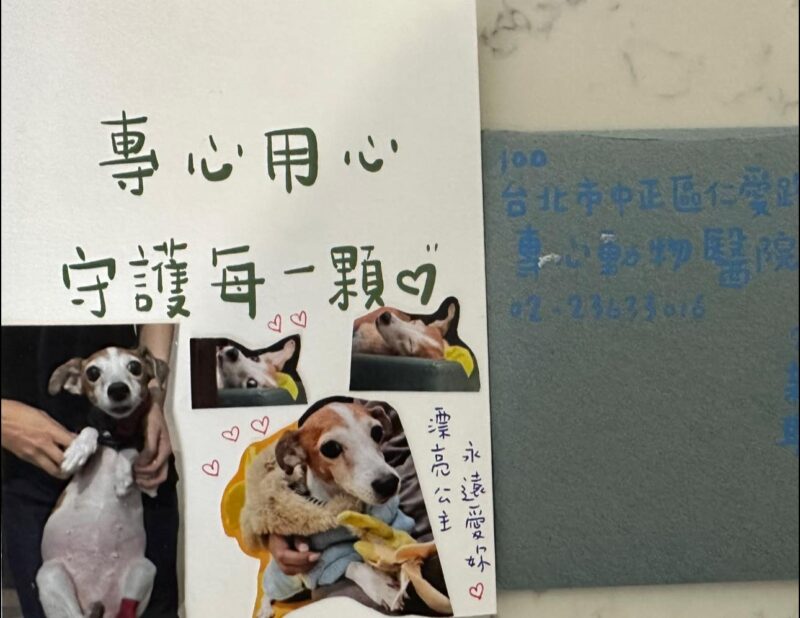 專心用心
守護每一顆♡
漂亮公主
永遠愛妳♡
100
台北市中正區仁愛路
專心動物醫院
02-23633016